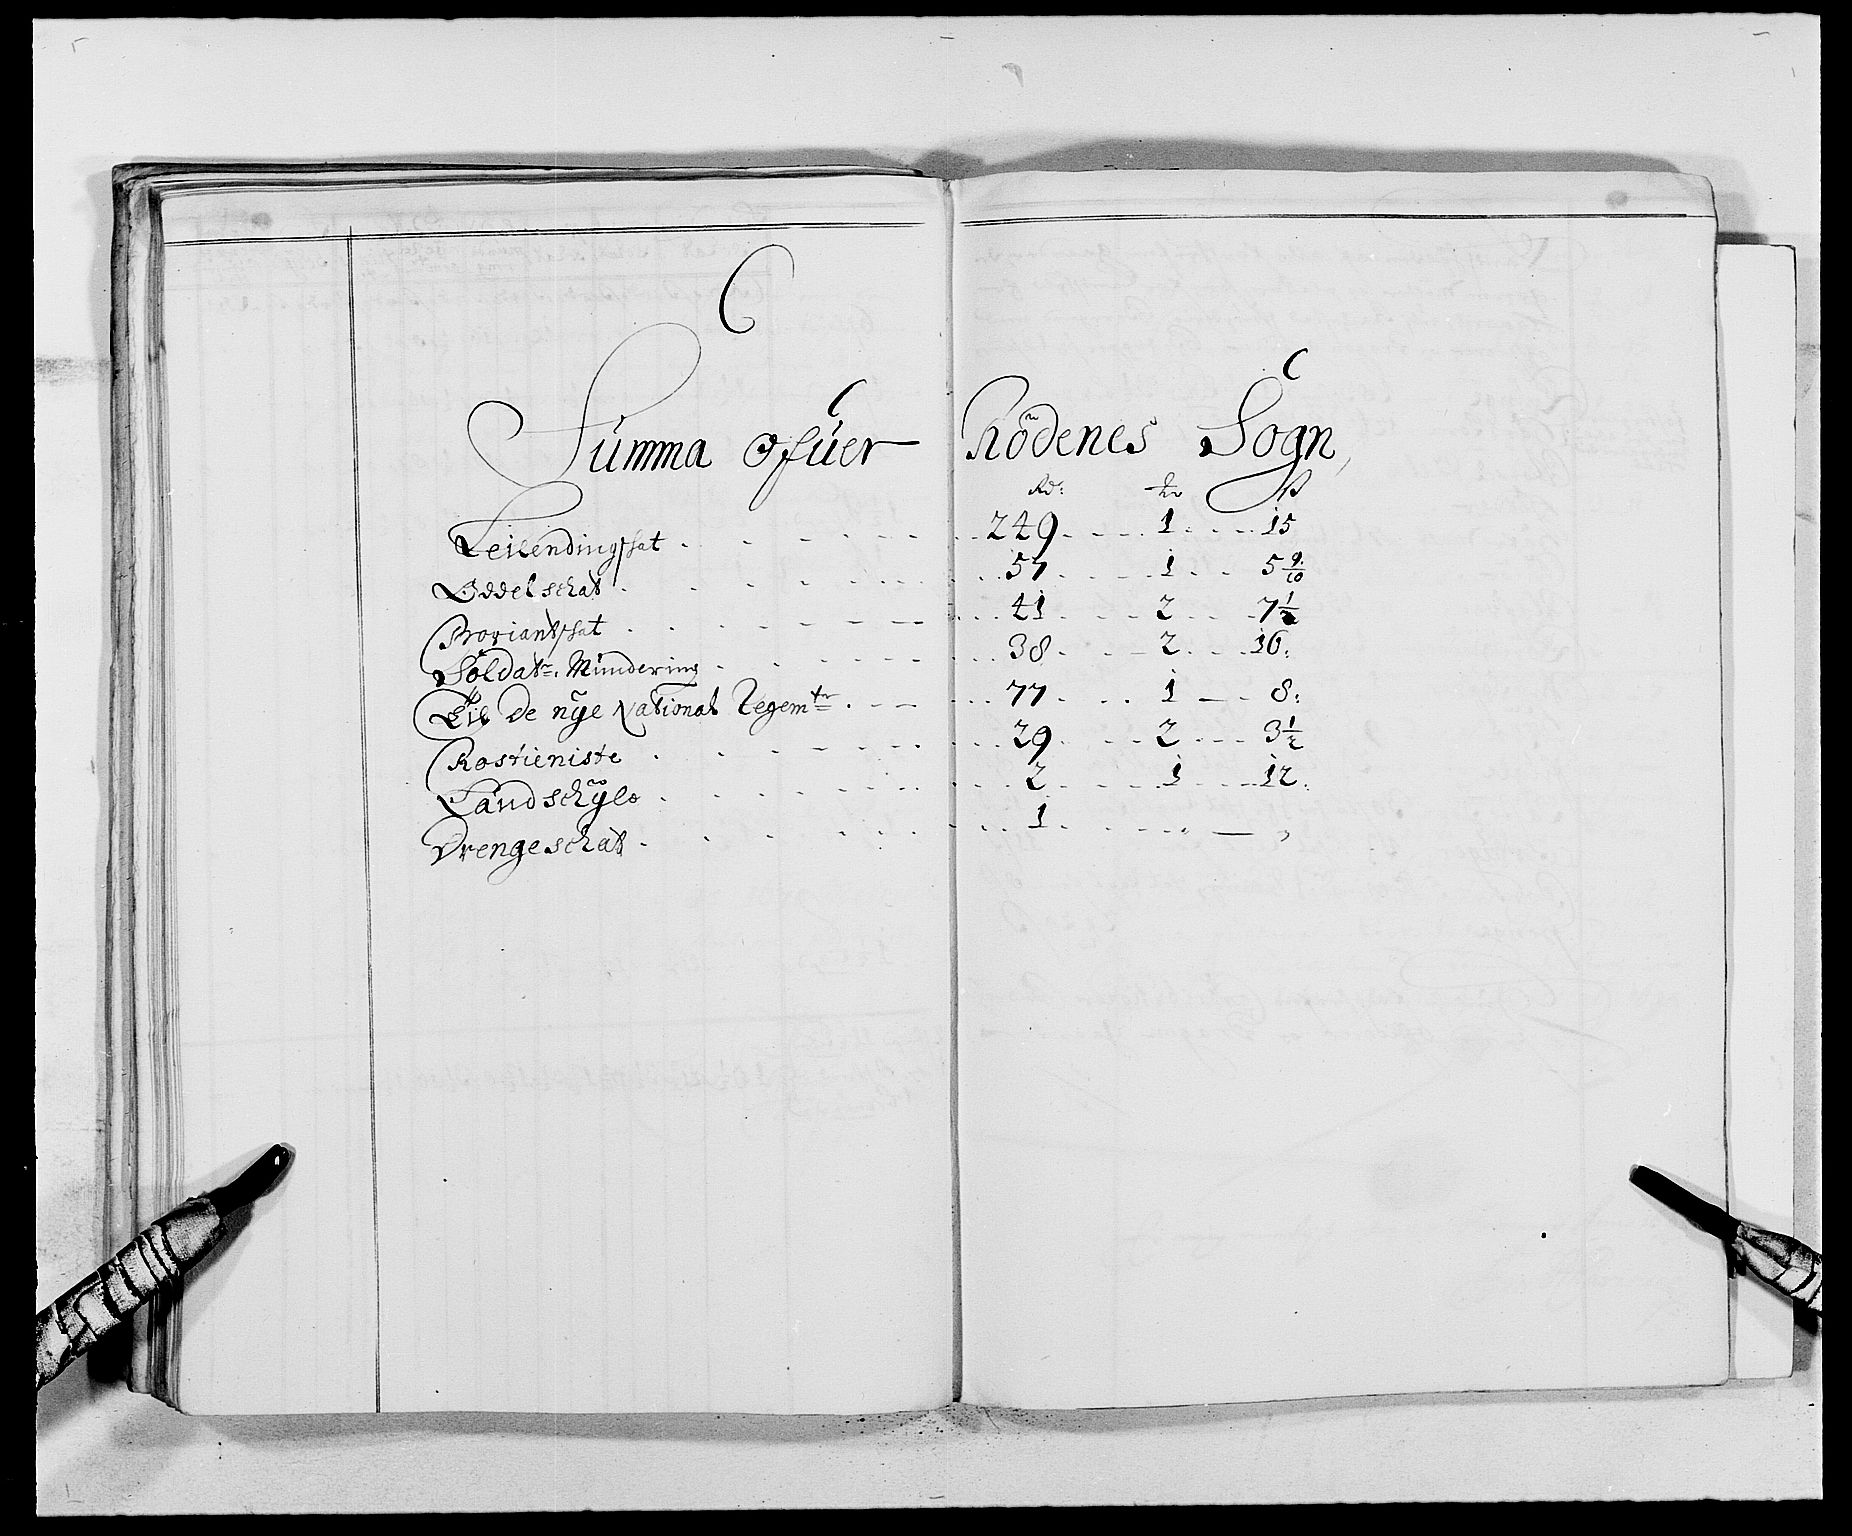 Summa ofuer Rödenes Sogn,
Rd: ƺ ß
Leilendingsshat 249 1 15
Oddelschat 57 1 5 9/10
Proviantsshat 41 2 7 1/2
Soldatr. Mundering 38 2 16:
Til de nye National Regemtr 77 1 8:
Rostieniste 29 2 3 1/2
Landschyld 2 1 12:
Drengeschat 1 " — "